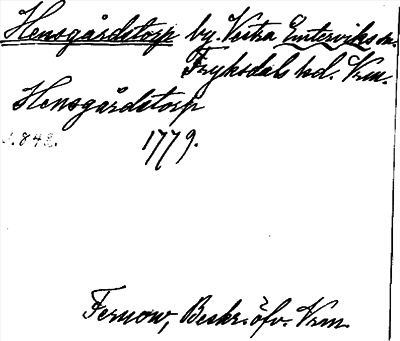 Hensgårdstorp by. Vestra Emterviks sn.
Fryksdals hd. Vrm.
Hensgårdstorp
s. 842. 1779.
Fernow, Beskr. öfv. Vrm.